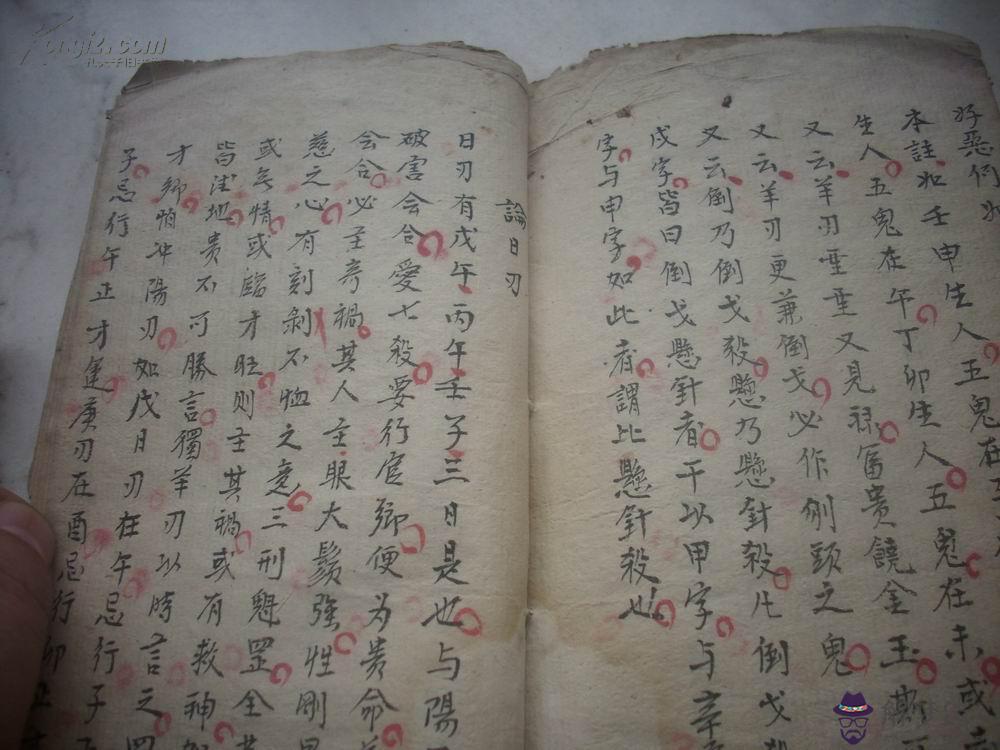 好惡例如
本註如壬申生人五鬼在
生人五鬼在午丁卯生人五鬼在未或
又云羊刃重重又見祿富貴饒金玉
又云羊刃更兼倒戈必作刎頭之鬼
又云倒乃倒戈殺懸乃懸針殺凡倒戈
戊字皆曰倒戈懸針者干以甲字与辛
字与申字如此者謂比懸針殺也
論日刃
日刃有戊午丙午壬子三日是也与陽
破害会合愛七殺要行官鄉便为贵命
会合必主奇禍其人主眼大鬚强性刚
慈之心有刻剥不恤之意三刑魁罡全
或無情或臨才旺则主其禍或有救神
皆法地贵不可勝言獨羊刃以時言之
才鄉怕冲陽刃如戊日刃在午忌行子
子忌行午正才運庚刃在酉忌行卯正
kongfz.com
孔夫子旧书网